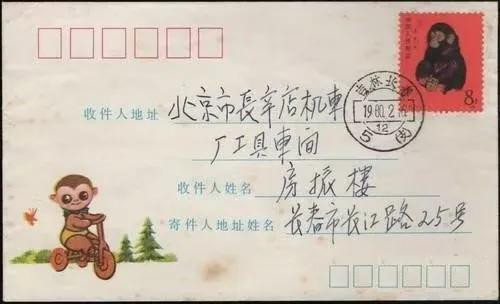 8分
1980.2.
12
收件人地址 北京市長辛店机車
厂工具車间
收件人姓名 房振樓
寄件人地址姓名 長春市長江路25号